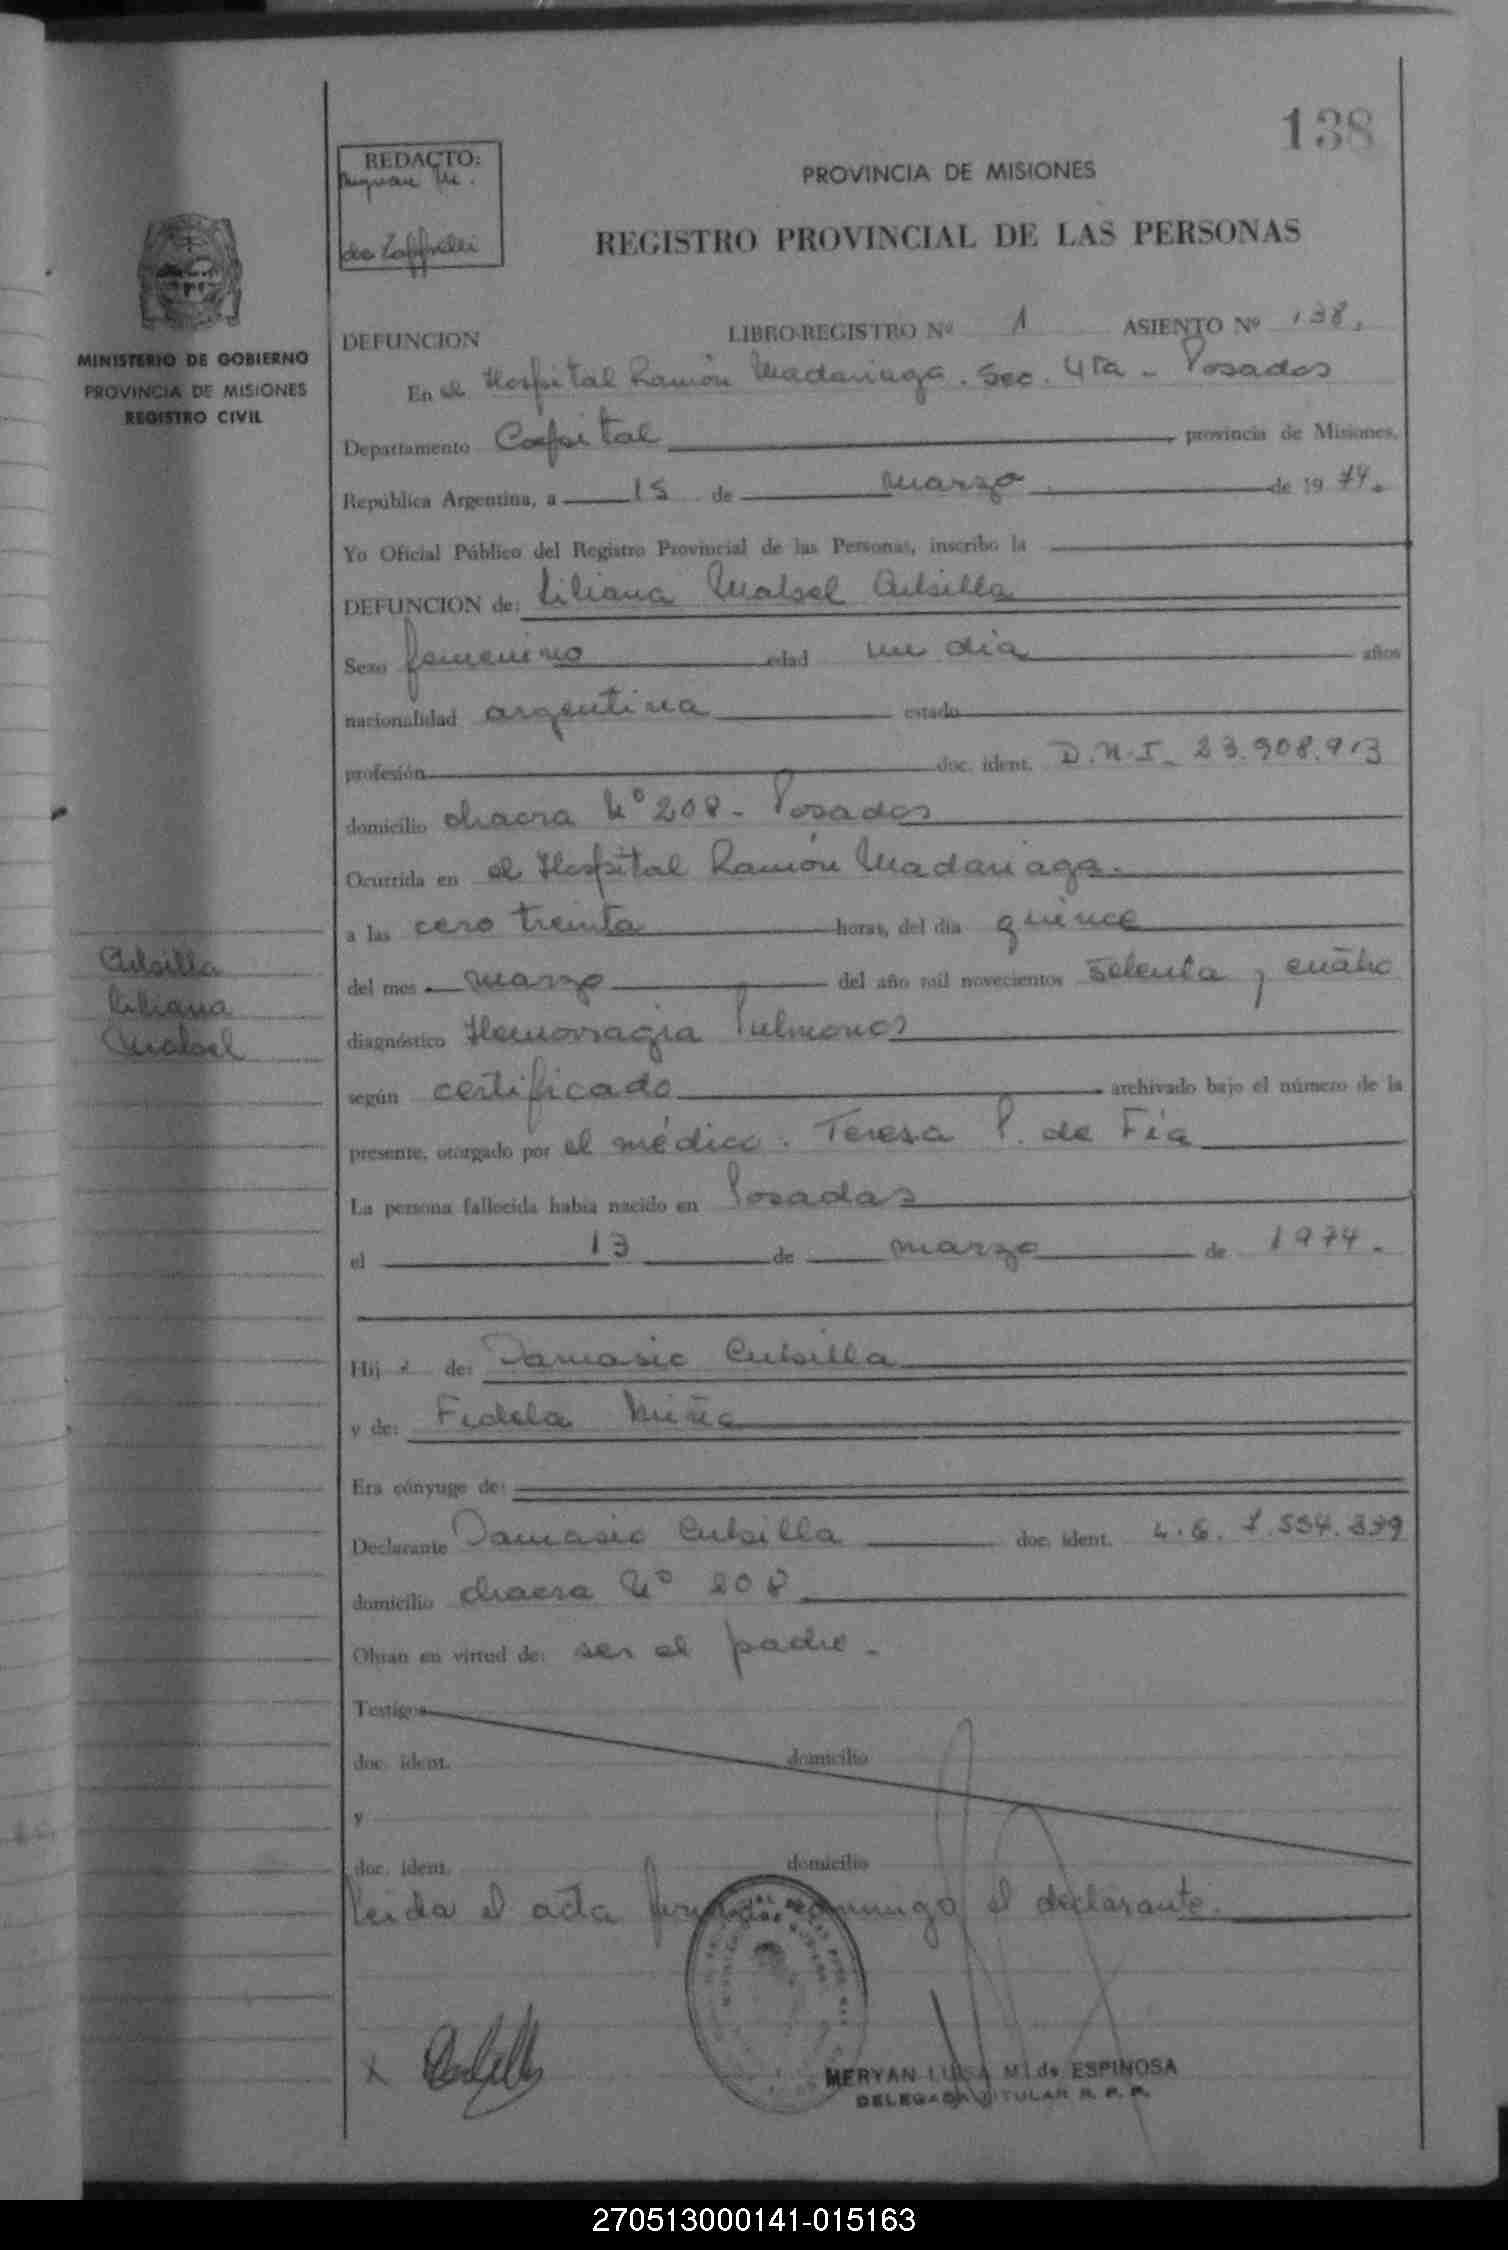 138
REDACTO:
PROVINCIA DE MISIONES
REGISTRO PROVINCIAL DE LAS PERSONAS
MINISTERIO DE GOBIERNO
PROVINCIA DE MISIONES
REGISTRO CIVIL
DEFUNCION LIBRO-REGISTRO Nº 1 ASIENTO Nº 138.
En el Hospital Ramón Madariaga. Sec. 4ta - Posadas
Departamento Capital provincia de Misiones,
República Argentina, a 15 de marzo de 1974.
Yo Oficial Público del Registro Provincial de las Personas, inscribo la
DEFUNCION de: Liliana Mabel Cubilla
Sexo femenino edad un día años
nacionalidad argentina estado
profesión doc. ident. D.N.I. 23.908.913
domicilio chacra Nº 208 - Posadas
Ocurrida en el Hospital Ramón Madariaga.
a las cero treinta horas, del día quince
del mes marzo del año mil novecientos setenta y cuatro
Cubilla
Liliana
Mabel
diagnóstico Hemorragia Pulmonar
según certificado archivado bajo el número de la
presente, otorgado por el médico. Teresa P. de Fía
La persona fallecida había nacido en Posadas
el 13 de marzo de 1974.
Hij a de: Damasio Cubilla
y de: Fidela Miña
Era cónyuge de:
Declarante Damasio Cubilla doc. ident. 7.554.839
domicilio chacra Nº 208
Obran en virtud de: ser el padre.
Testigos
doc. ident. domicilio
y
doc. ident. domicilio
Leida el acta firma conmigo el declarante.
X Cubilla
MERYAN LUISA M. de ESPINOSA
DELEGADA TITULAR R. P. P.
270513000141-015163